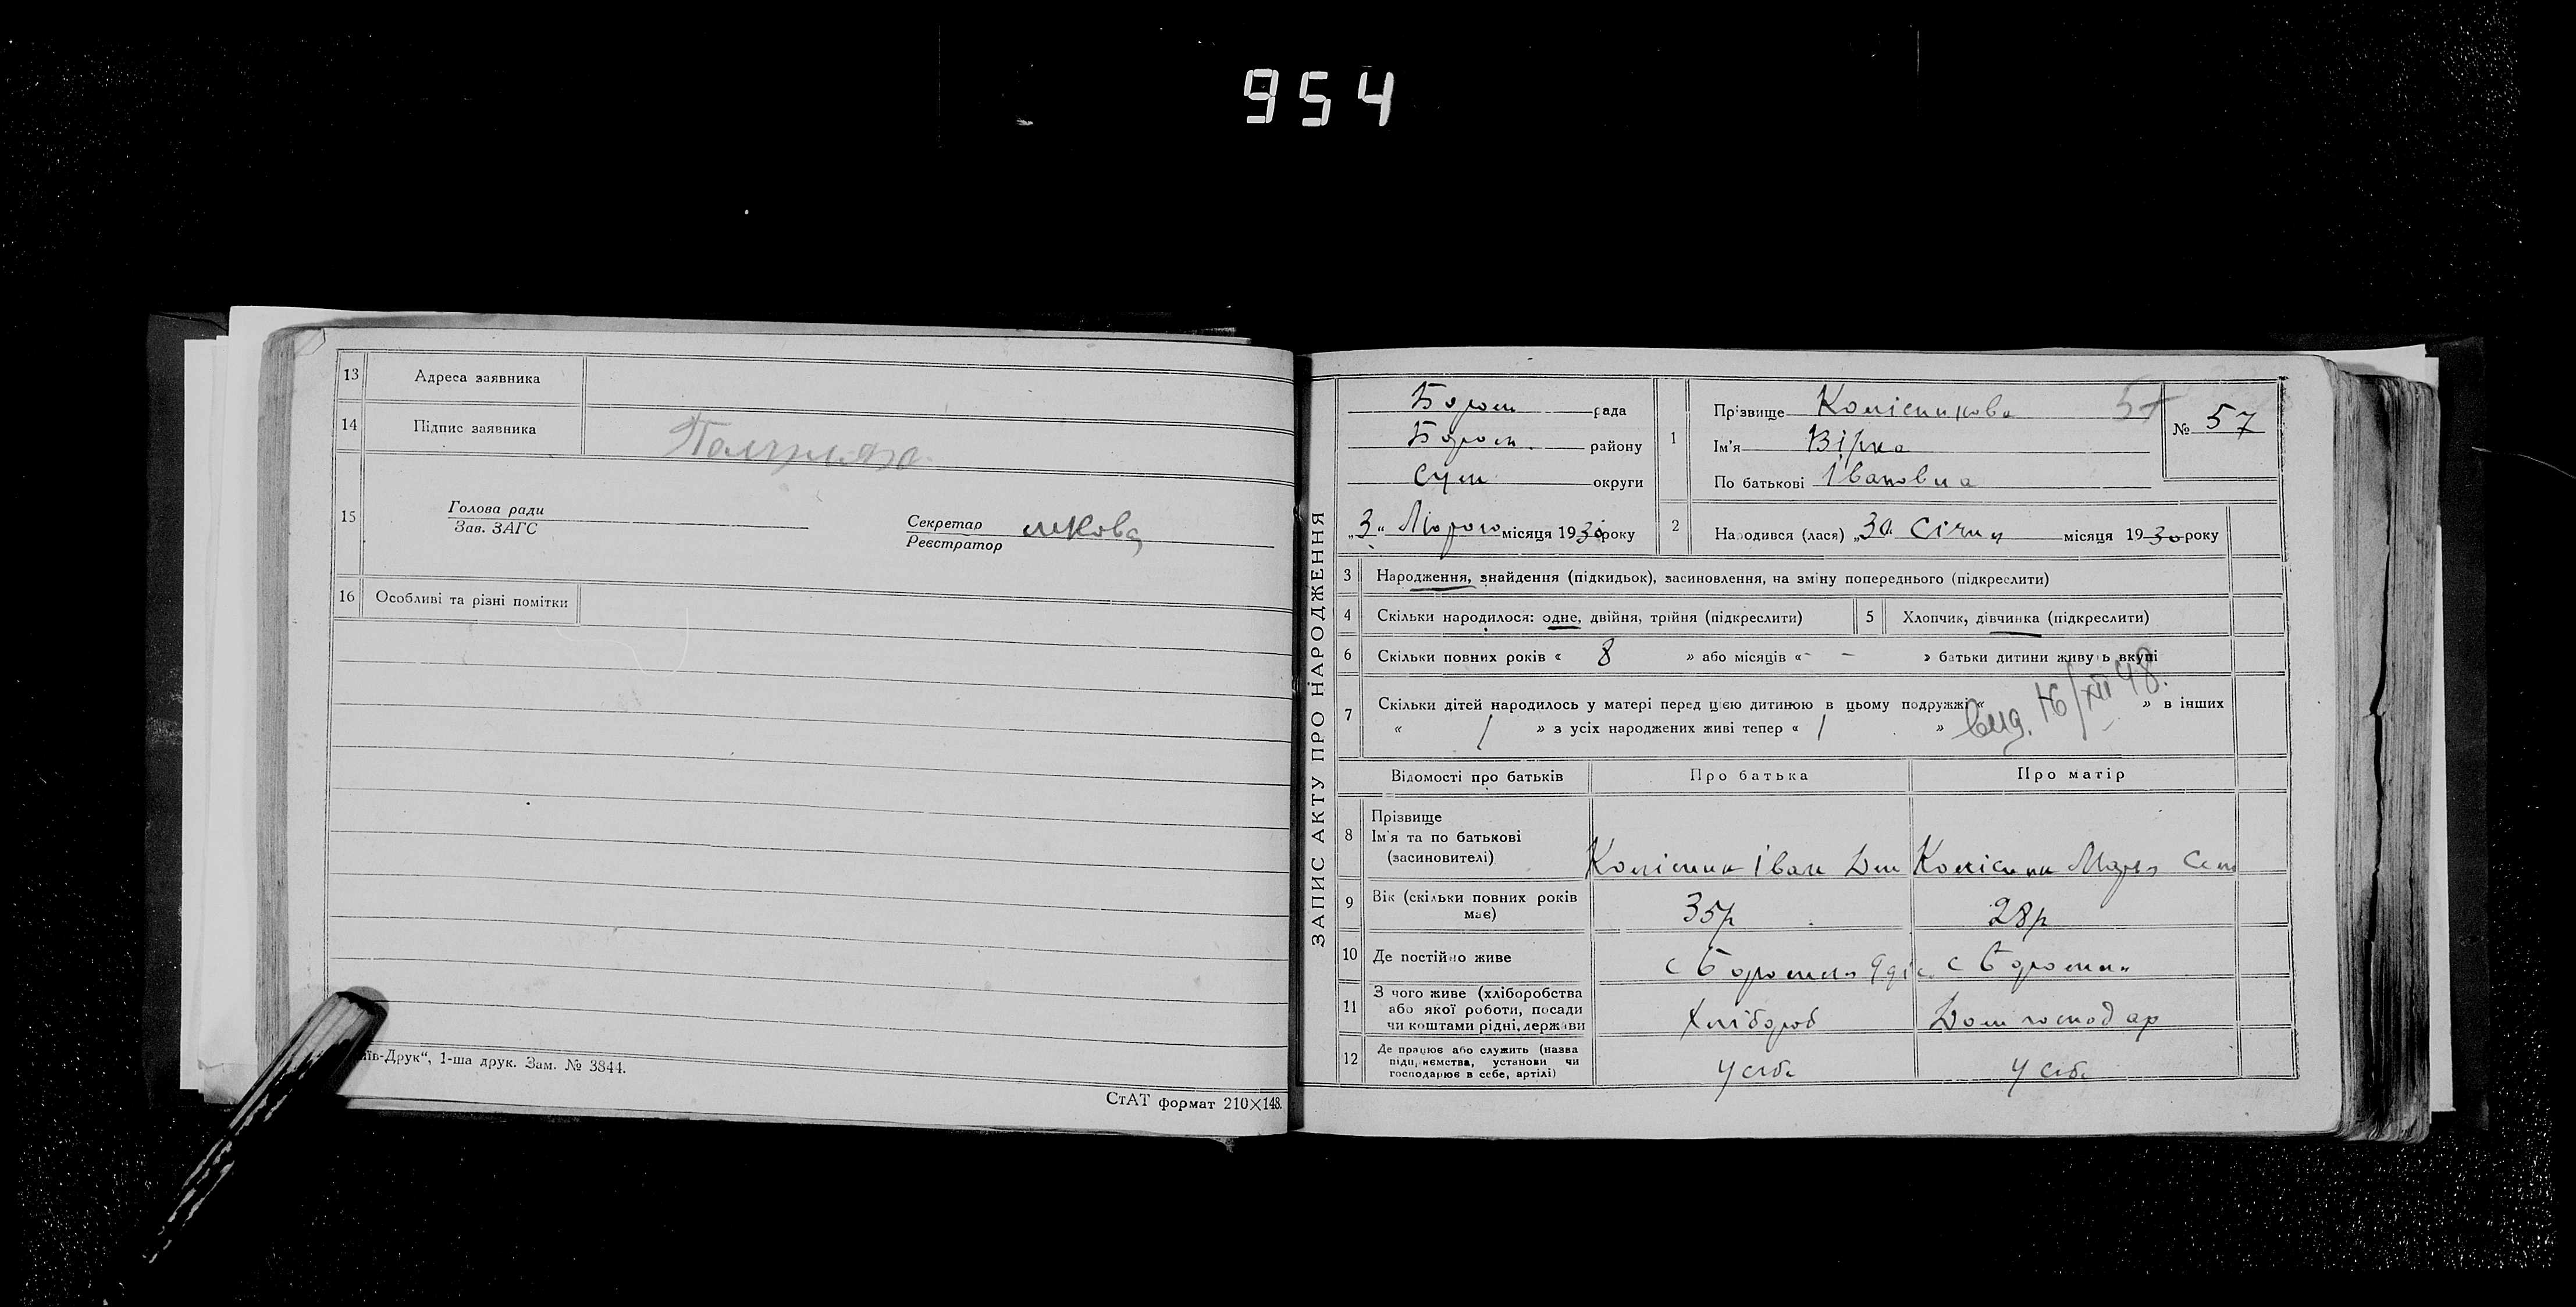 954
13 Адреса заявника
14 Підпис заявника
15 Голова ради
Зав. ЗАГС
Секретар
Реєстратор
16 Особливі та різні помітки
їв-Друк“, 1-ша друк. Зам. № 3844.
СтАТ формат 210×148.
ЗАПИС АКТУ ПРО НАРОДЖЕННЯ
Бором рада
Бором. району
Сум округи
„3“ Лютого місяця 1930 року
1 Прізвище Колісникова 57
Ім'я Вірка
По батькові Івановна
№ 57
2 Народився (лася) „30 Січня місяця 1930 року
3 Народження, знайдення (підкидьок), засиновлення, на зміну попереднього (підкреслити)
4 Скільки народилося: одне, двійня, трійня (підкреслити) 5 Хлопчик, дівчинка (підкреслити)
6 Скільки повних років « 8 » або місяців « - - » батьки дитини живуть вкупі
7 Скільки дітей народилось у матері перед цією дитиною в цьому подружжі « » в інших
« / » з усіх народжених живі тепер « / » вид. 16/XII 48.
Відомості про батьків Про батька Про матір
8 Прізвище
Ім'я та по батькові
(засиновителі)
Колісник Іван Дем Колісник Марья Сем
9 Вік (скільки повних років має) 35р 28р
10 Де постійно живе с Боромля с Боромля
11 З чого живе (хліборобства
або якої роботи, посади
чи коштами рідні, держави
Хлібороб Дом господар
12 Де працює або служить (назва
підприємства, установи чи
господарює в себе, артілі)
У себе У себе